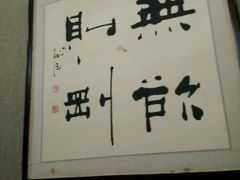 無欲
則剛